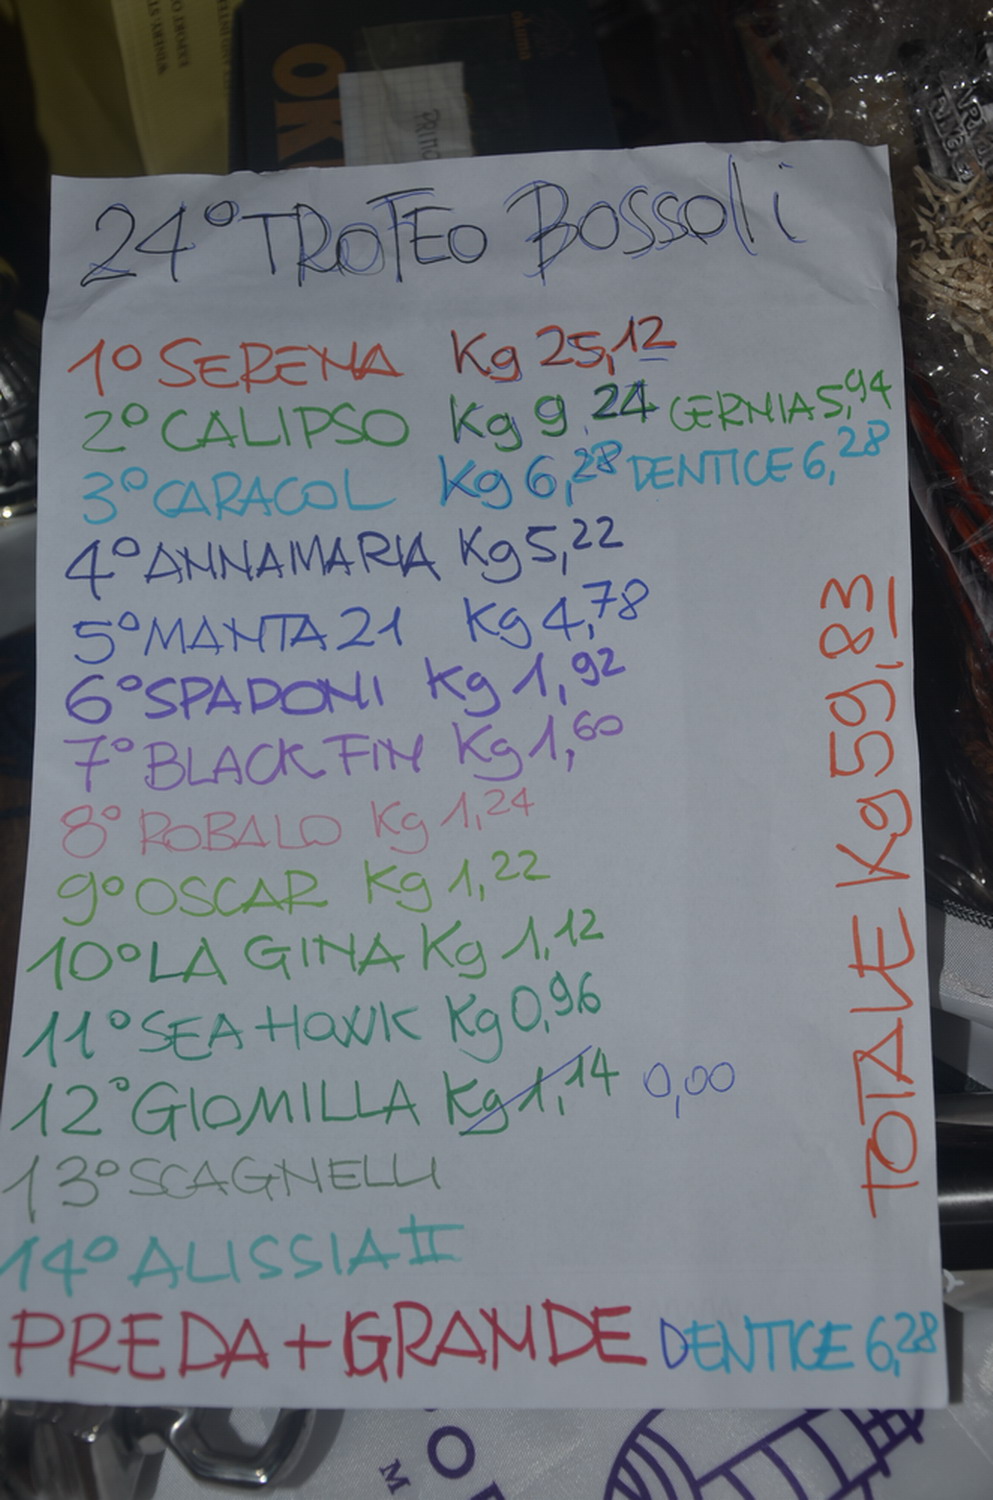 OK
24° TROFEO BOSSOLI
1° SERENA Kg 25,12
2° CALIPSO Kg 9,24 CERNIA 5,94
3° CARACOL Kg 6,28 DENTICE 6,28
4° ANNAMARIA Kg 5,22
5° MANTA 21 Kg 4,78
6° SPADONI Kg 1,92
7° BLACK FIN Kg 1,60
8° ROBALO Kg 1,24
9° OSCAR Kg 1,22
10° LA GINA Kg 1,12
11° SEA HAWK Kg 0,96
12° GIOMILLA Kg 1,14 0,00
13° SCAGNELLI
14° ALISSIA II
PREDA + GRANDE DENTICE 6,28
TOTALE Kg 59,83